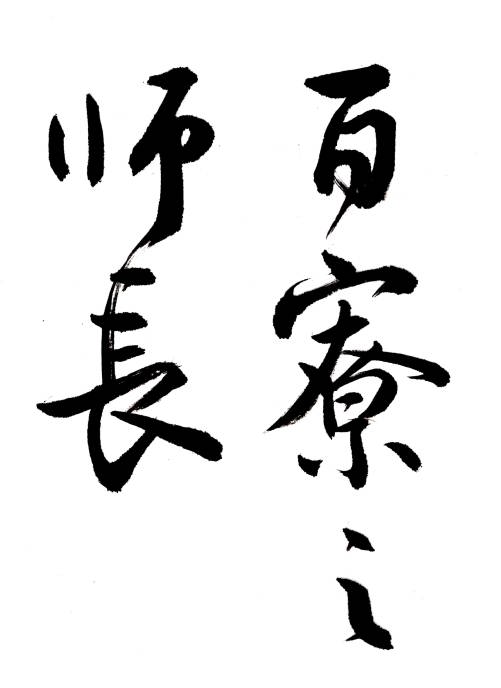 百寮之
师長